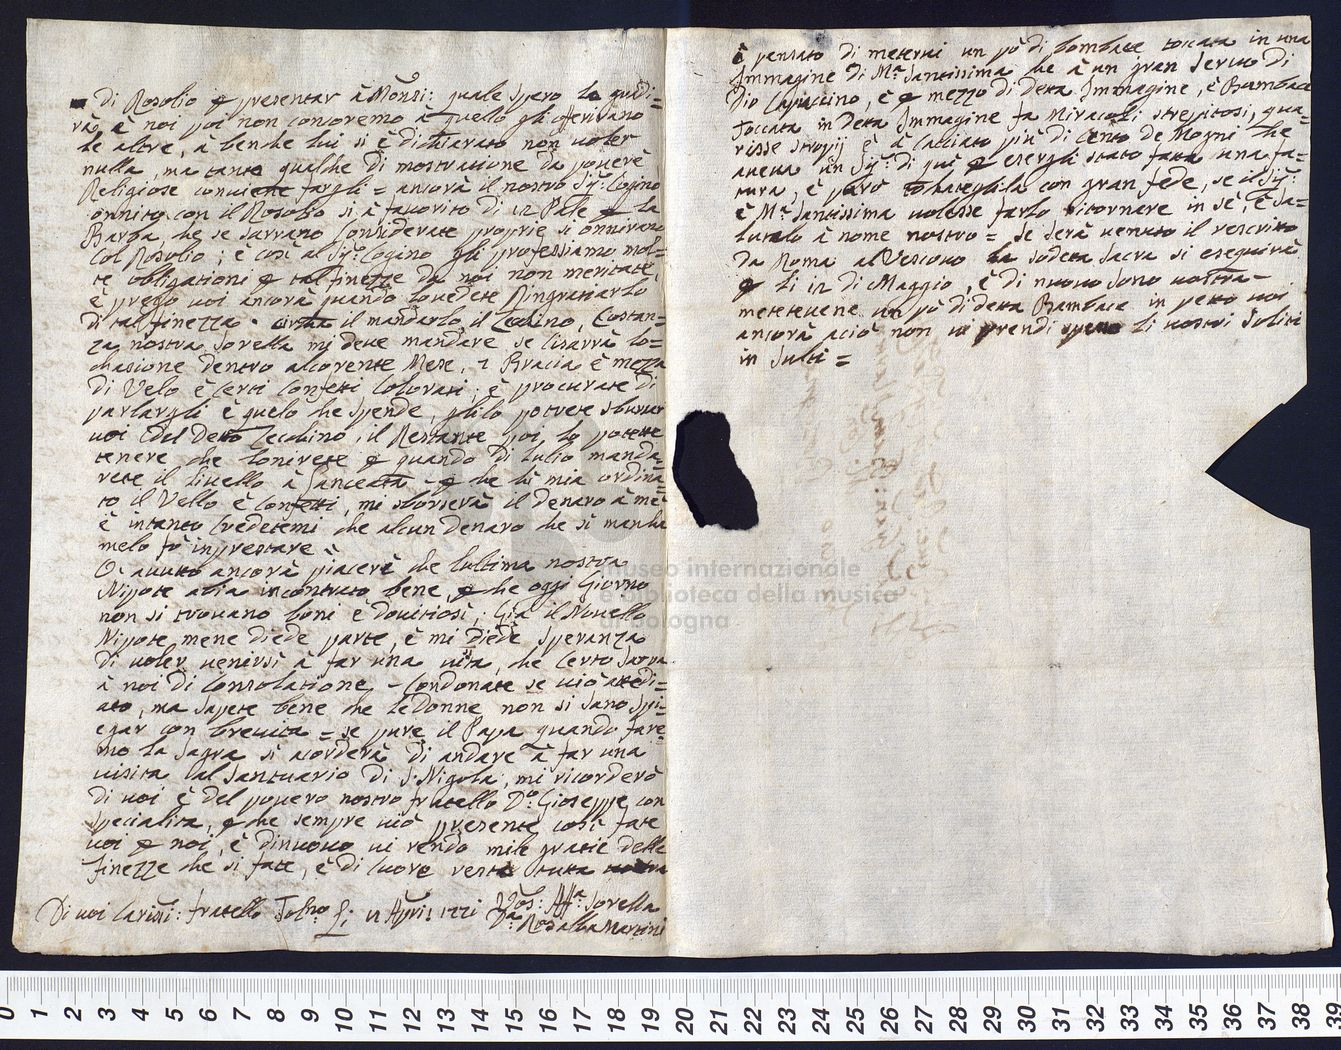 di Rosolio p presentar à Monsi: quale spero la gradi=
rà, è noi poi non concoremo à quello gli offerivano
le altre, à benche lui si è dichiarato non voler
nulla, ma tanto qualche di mostratione da povere
Religiose conviene fargli = ancora il nostro Sig: Cogino
onnito con il Rosolio si è favorito di 12 Pale p la
Barba, che se sarrano Considerate proprie si onnirano
Col Rosolio, è così al Sig: Cogino gli professiamo mol=
te obligationi p tal finezze da noi non meritate
è prego voi ancora quando lo vedete Ringratiarlo
di tal finezza. circa il mandarlo il Cechino, Costan=
za nostra Sorella mi deve mandare se li sarrà lo=
chasione dentro al corente Mese, 2 Bracia è mezza
di Velo è Certi Confetti Colorati, è procurate di
parlargli è quelo che spende, ghilo potrete sborsar
voi Del Detto Cechino, il Restante poi, lo potette
tenere che lonirete p quando di lulio manda=
rete il livello à
to il Vello è Confetti, mi sborserà il denaro à mè
è intanto Credetemi che alcun denaro che si mancha
melo fò inprestare
O' auuto ancora piacere che lultima nostra
Nipote abia incontrato bene, p che oggi Giorno
non si trovano boni e dovitiosi, Già il Novello
Nipote mene diede parte, è mi diede speranza
di voler venirsi à far una vita, che Certo sarra
à noi di Consolatione, Condonate se viò attedi=
ato, ma sapete bene che le Donne non si sano spi=
egar con brevita = se pure il Papa quando fare
mo la Sagra si acorderà di andare à far una
visita al Santuario di S: Nigola, mi ricorderò
di voi è del povero nostro fratello D: Gioseppe con
specialita, p che sempre viò presente, così fate
voi p noi, è dinuovo vi rendo mile gratie delle
finezze che si fate, è di Cuore resto tutta vostra
Di voi Carissi: fratello
Aff: Sorella
Rosalba Martini
è pensato di metervi un pò di bombace toccata in una
Immagine di M: Santissima che à un gran Servo di
Dio Capuccino, è p mezzo di detta Immagine, è Bambace
toccata in detta Immagine fa Miracoli strepitosi, gua=
risse stropij è à Cacciato più di Cento de Mogni che
aveva un Sig: di quì p esergli stato fatta una fa=
tura, è però tochateghila con gran fede, se il Sig:
è M: Santissima volesse farlo ritornare in sè, è Sa=
lutalo à nome nostro = se serà venuto il rescrito
da Roma al Vescovo la sodeta Sacra si eseguirà
p li 12 di Maggio, è di nuovo sono vostra
metetevene un pò di detta Bambace in petto voi
ancora aciò non vi prendi li vostri soliti
in sulti =
museo internazionale
e biblioteca della musica
di bologna
0 1 2 3 4 5 6 7 8 9 10 11 12 13 14 15 16 17 18 19 20 21 22 23 24 25 26 27 28 29 30 31 32 33 34 35 36 37 38 39